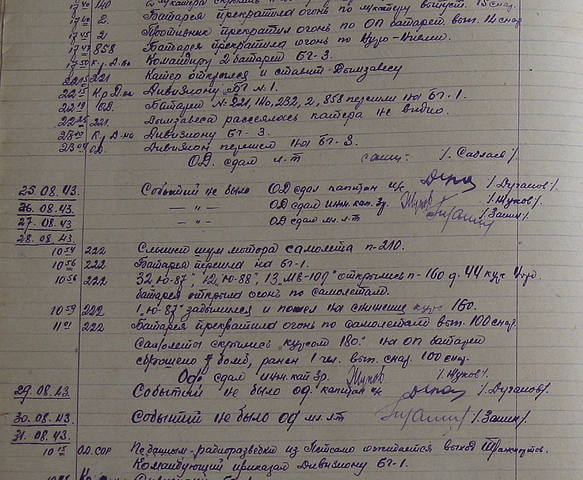 17 40 140 2 катера скрылись
17 40 2. Батарея прекратила огонь по катеру выпуст. 15 снар.
17 45 2 Противник прекратил огонь по ОП батареи вып. 12 снар
17 47 858 Батарея прекратила огонь по
17 50 К.р. Д-на Командиру 2 батареи БГ-3.
221 Катер открылся и ставит Дымзавесу
22 15 К.р. Д-на Дивизиону БГ №1.
22 19 О.D. Батареи №221, 140, 232, 2, 858 перешли на БГ-1.
221. Дымзавеса рассеялась катера не видно.
К.р. Д-на Дивизиону БГ-3.
23 04 О.D. Дивизион перешел на БГ-3.
О.D. сдал л-т /. Саблаев /.
25.08.43. Событий не было ОD сдал капитан и/с /. Духанов /.
26.08.43. — " — ОD сдал инж. кап. 3р. Жуков /. Жуков /.
27.08.43. — " — ОD сдал мл. л-т /. Зашин /.
28.08.43
10 54 222 Слышит шум мотора самолета п-210.
10 56 222 Батарея перешла на БГ-1.
10 56 222 32 Ю-87", 12 Ю-88", 13 МВ-109" открылись п-160 д. 44 курс
батарея открыла огонь по самолетам.
10 59 222 1 „Ю-87" задымился и пошел на снижение курс 160.
11 01 222 Батарея прекратила огонь по самолетам вып. 100 снар.
Самолеты скрылись курсом 180° на ОП батареи
сброшено бомб, ранен 1 чел. вып. снар. 100 снар.
ОD сдал инж. кап 3р. Жуков /. Жуков /.
29.08.43. Событий не было ОD. капитан и/с /. Духанов /.
30.08.43. Событий не было ОD мл. л-т /. Зашин /.
31.08.43.
10 15 О.D. СОР По данным-радиоразведки из Петсамо ожидается выход
Командующий приказал Дивизиону БГ-1.